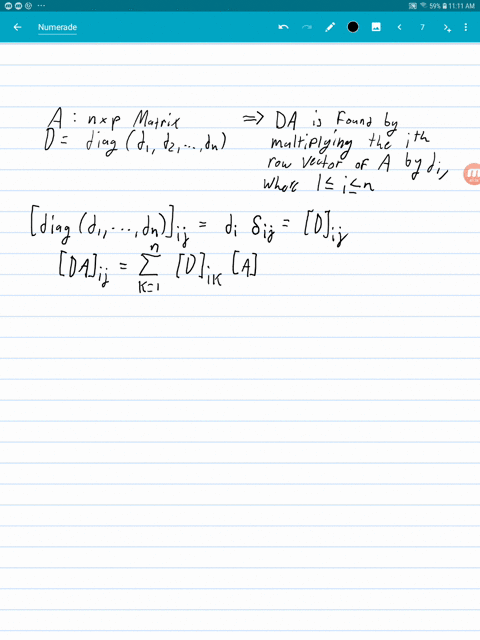 59% 11:11 AM
Numerade
7
A : n×p Matrix
D = diag (d₁, d₂, ..., dn)
⇒ DA is found by
multiplying the ith
row vector of A by di,
where 1 ≤ i ≤ n
[diag (d₁, ..., dn)]ij = di δij = [D]ij
[DA]ij = ∑ₖ₌₁ⁿ [D]iK [A]